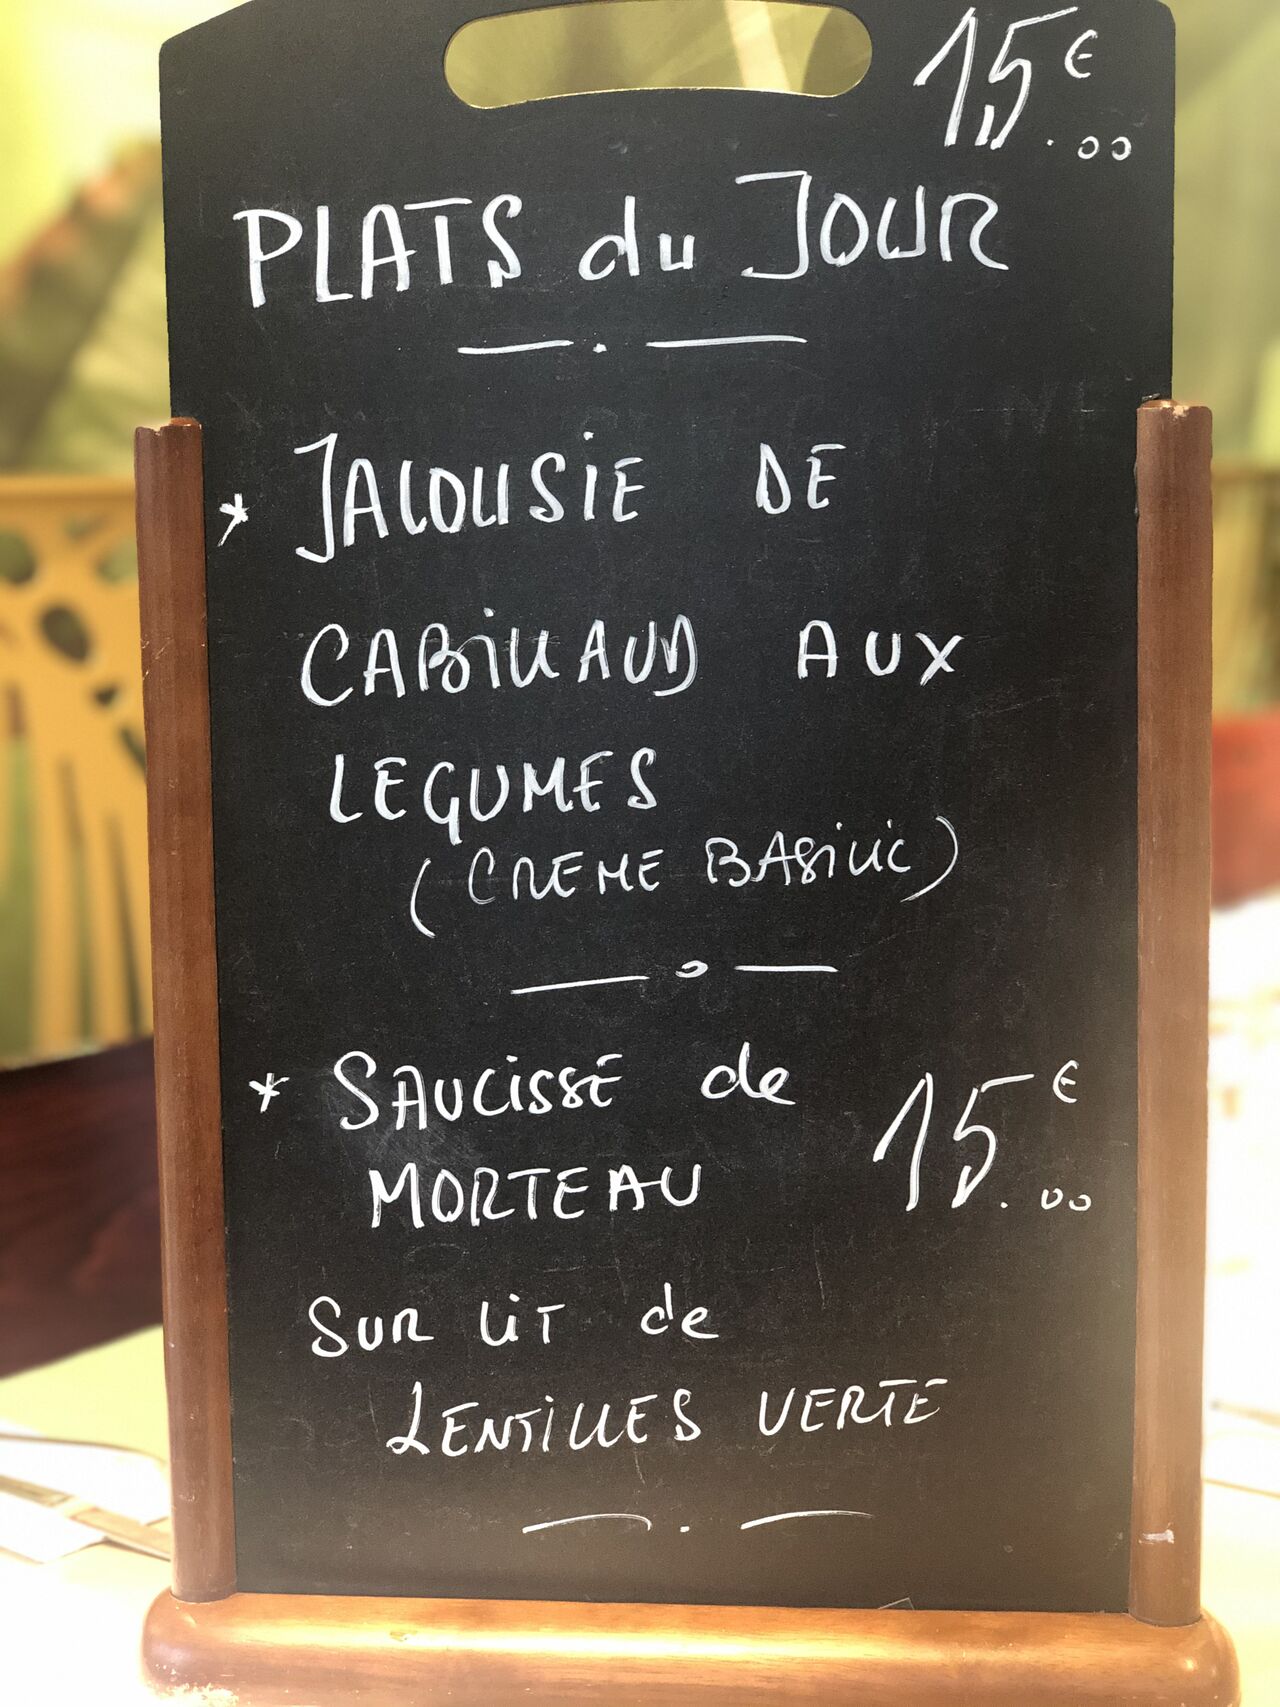 15€.00
PLATS du JOUR
* JALOUSIE DE
CABILLAUD AUX
LEGUMES
(CREME BASILIC)
* SAUCISSE de
MORTEAU 15€.00
SUR LIT de
LENTILLES VERTE